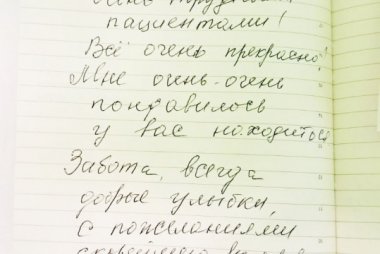 пациентами!
Всё очень прекрасно!
Мне очень-очень
понравилось
у вас находиться
Забота, всегда
добрые улыбки,
с пожеланиями